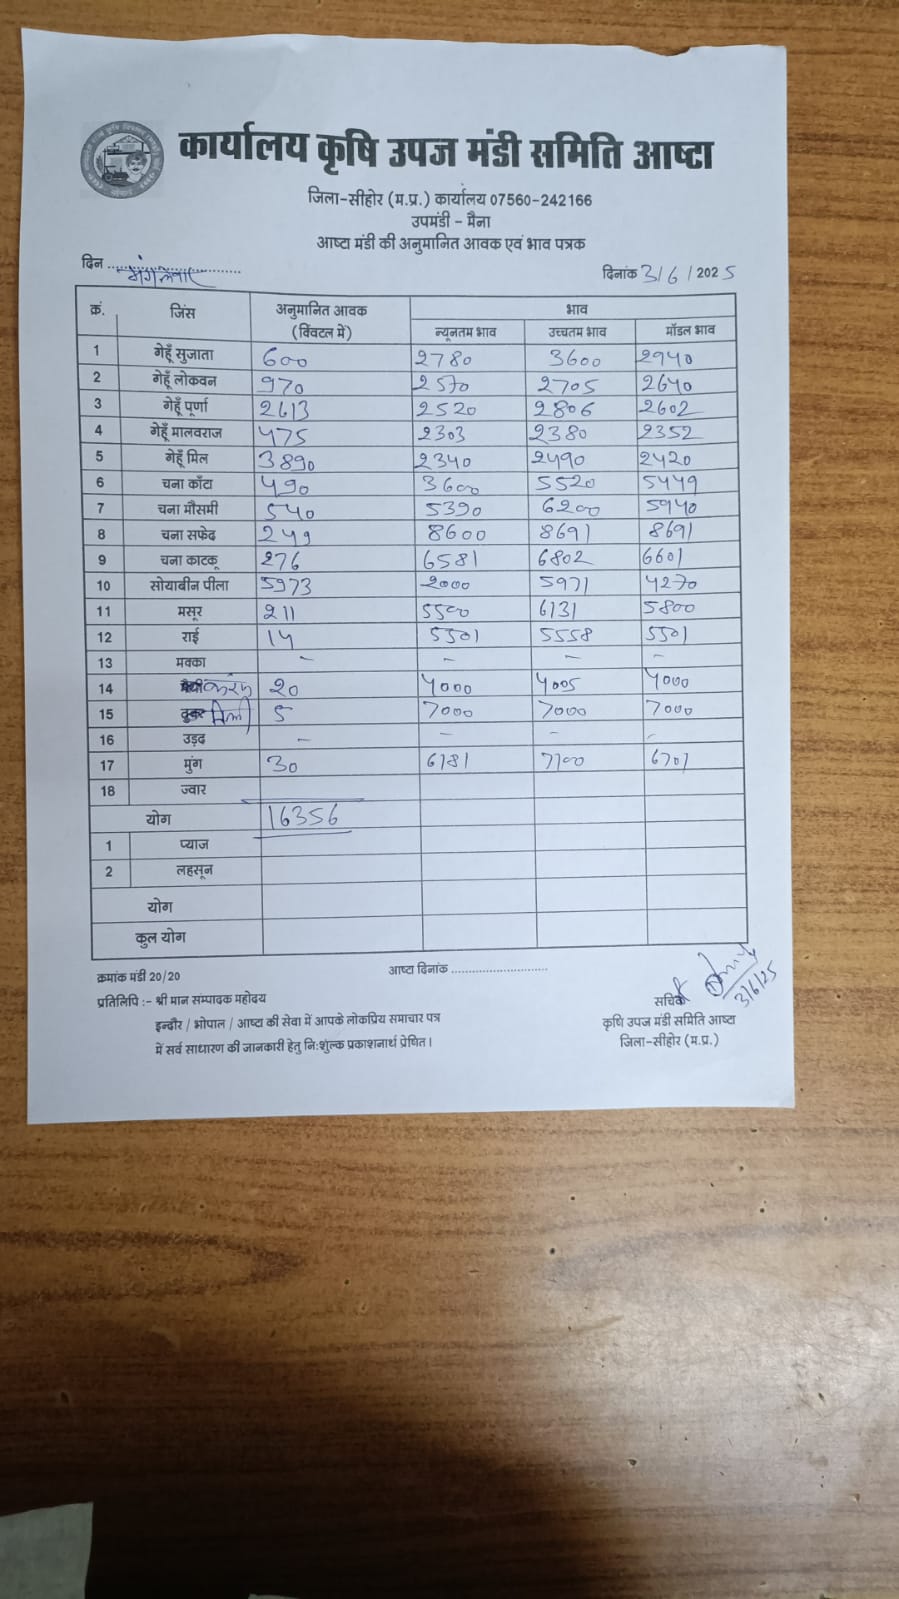 कार्यालय कृषि उपज मंडी समिति आष्टा
जिला-सीहोर (म.प्र.) कार्यालय 07560-242166
उपमंडी - मैना
आष्टा मंडी की अनुमानित आवक एवं भाव पत्रक
दिन मंगलवार दिनांक 3/6/2025
क्रं. जिंस अनुमानित आवक (क्विंटल में) भाव
न्यूनतम भाव उच्चतम भाव मॉडल भाव
1 गेहूँ सुजाता 600 2780 3600 2940
2 गेहूँ लोकवन 970 2570 2705 2640
3 गेहूँ पूर्णा 2613 2520 2806 2602
4 गेहूँ मालवराज 475 2303 2380 2352
5 गेहूँ मिल 3890 2340 2490 2420
6 चना काँटा 490 3600 5520 5449
7 चना मौसमी 540 5390 6200 5940
8 चना सफेद 249 8600 8691 8691
9 चना काटकू 276 6581 6802 6601
10 सोयाबीन पीला 5973 2000 5971 4270
11 मसूर 211 5500 6131 5800
12 राई 14 5501 5558 5501
13 मक्का - - - -
14 20 4000 4005 4000
15 5 7000 7000 7000
16 उड़द - - - -
17 मुंग 30 6181 7100 6701
18 ज्वार
योग 16356
1 प्याज
2 लहसून
योग
कुल योग
क्रमांक मंडी 20/20 आष्टा दिनांक
प्रतिलिपि :- श्री मान सम्पादक महोदय
इन्दौर / भोपाल / आष्टा की सेवा में आपके लोकप्रिय समाचार पत्र
में सर्व साधारण की जानकारी हेतु नि:शुल्क प्रकाशनार्थ प्रेषित।
3/6/25
सचिव
कृषि उपज मंडी समिति आष्टा
जिला-सीहोर (म.प्र.)